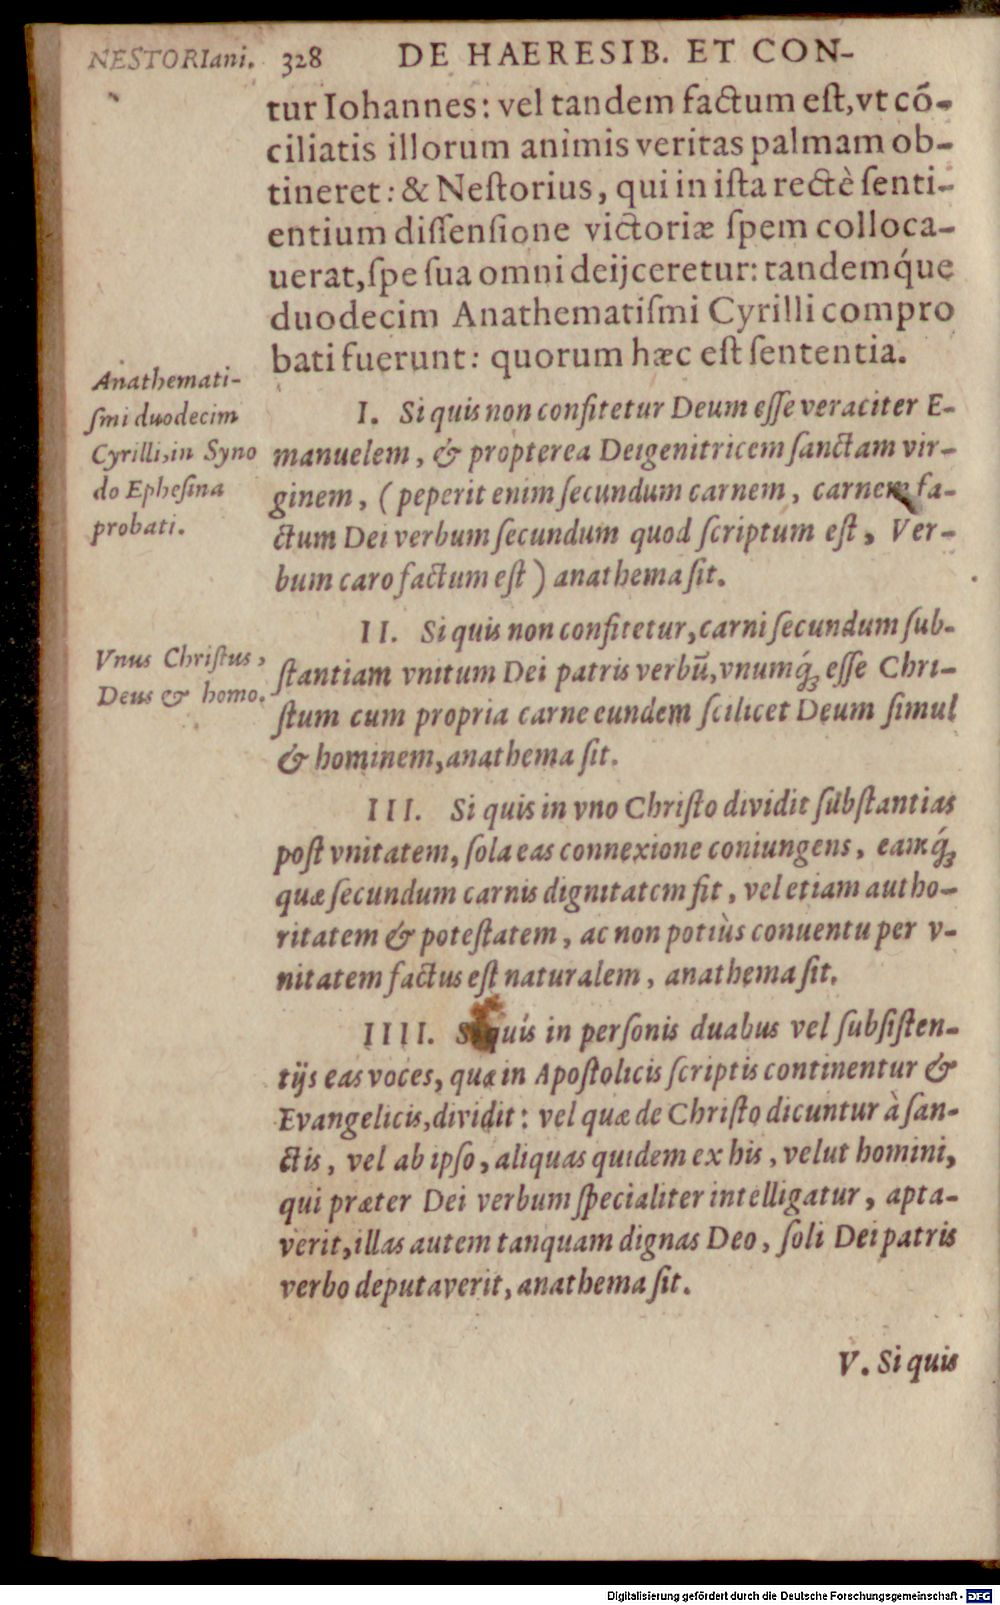 NESTORIani. 328 DE HAERESIB. ET CON-
tur Iohannes: vel tandem factum eſt, vt cō-
ciliatis illorum animis veritas palmam ob-
tineret: & Neſtorius, qui in iſta rectè ſenti-
entium diſſenſione victoriæ ſpem colloca-
uerat, ſpe ſua omni deijceretur: tandemq́ue
duodecim Anathematiſmi Cyrilli compro
bati fuerunt: quorum hæc eſt ſententia.
Anathemati-
ſmi duodecim
Cyrilli, in Syno
do Epheſina
probati.
I. Si quis non confitetur Deum eſſe veraciter E-
manuelem, & propterea Deigenitricem ſanctam vir-
ginem, (peperit enim ſecundum carnem, carnem fa-
ctum Dei verbum ſecundum quod ſcriptum eſt, Ver-
bum caro factum eſt) anathema ſit.
Vnus Chriſtus,
Deus & homo.
II. Si quis non confitetur, carni ſecundum ſub-
ſtantiam vnitum Dei patris verbū, vnumq́ꝫ eſſe Chri-
ſtum cum propria carne eundem ſcilicet Deum ſimul
& hominem, anathema ſit.
III. Si quis in vno Chriſto dividit ſubſtantias
poſt vnitatem, ſola eas connexione coniungens, eamq́ꝫ
quæ ſecundum carnis dignitatem fit, vel etiam autho-
ritatem & poteſtatem, ac non potiùs conuentu per v-
nitatem factus eſt naturalem, anathema ſit.
IIII. Si quis in perſonis duabus vel ſubſiſten-
tijs eas voces, quæ in Apoſtolicis ſcriptis continentur &
Evangelicis, dividit: vel quæ de Chriſto dicuntur à ſan-
ctis, vel ab ipſo, aliquas quidem ex his, velut homini,
qui præter Dei verbum ſpecialiter intelligatur, apta-
verit, illas autem tanquam dignas Deo, ſoli Dei patris
verbo deputaverit, anathema ſit.
V. Si quis
Digitalisierung gefördert durch die Deutsche Forschungsgemeinschaft - DFG